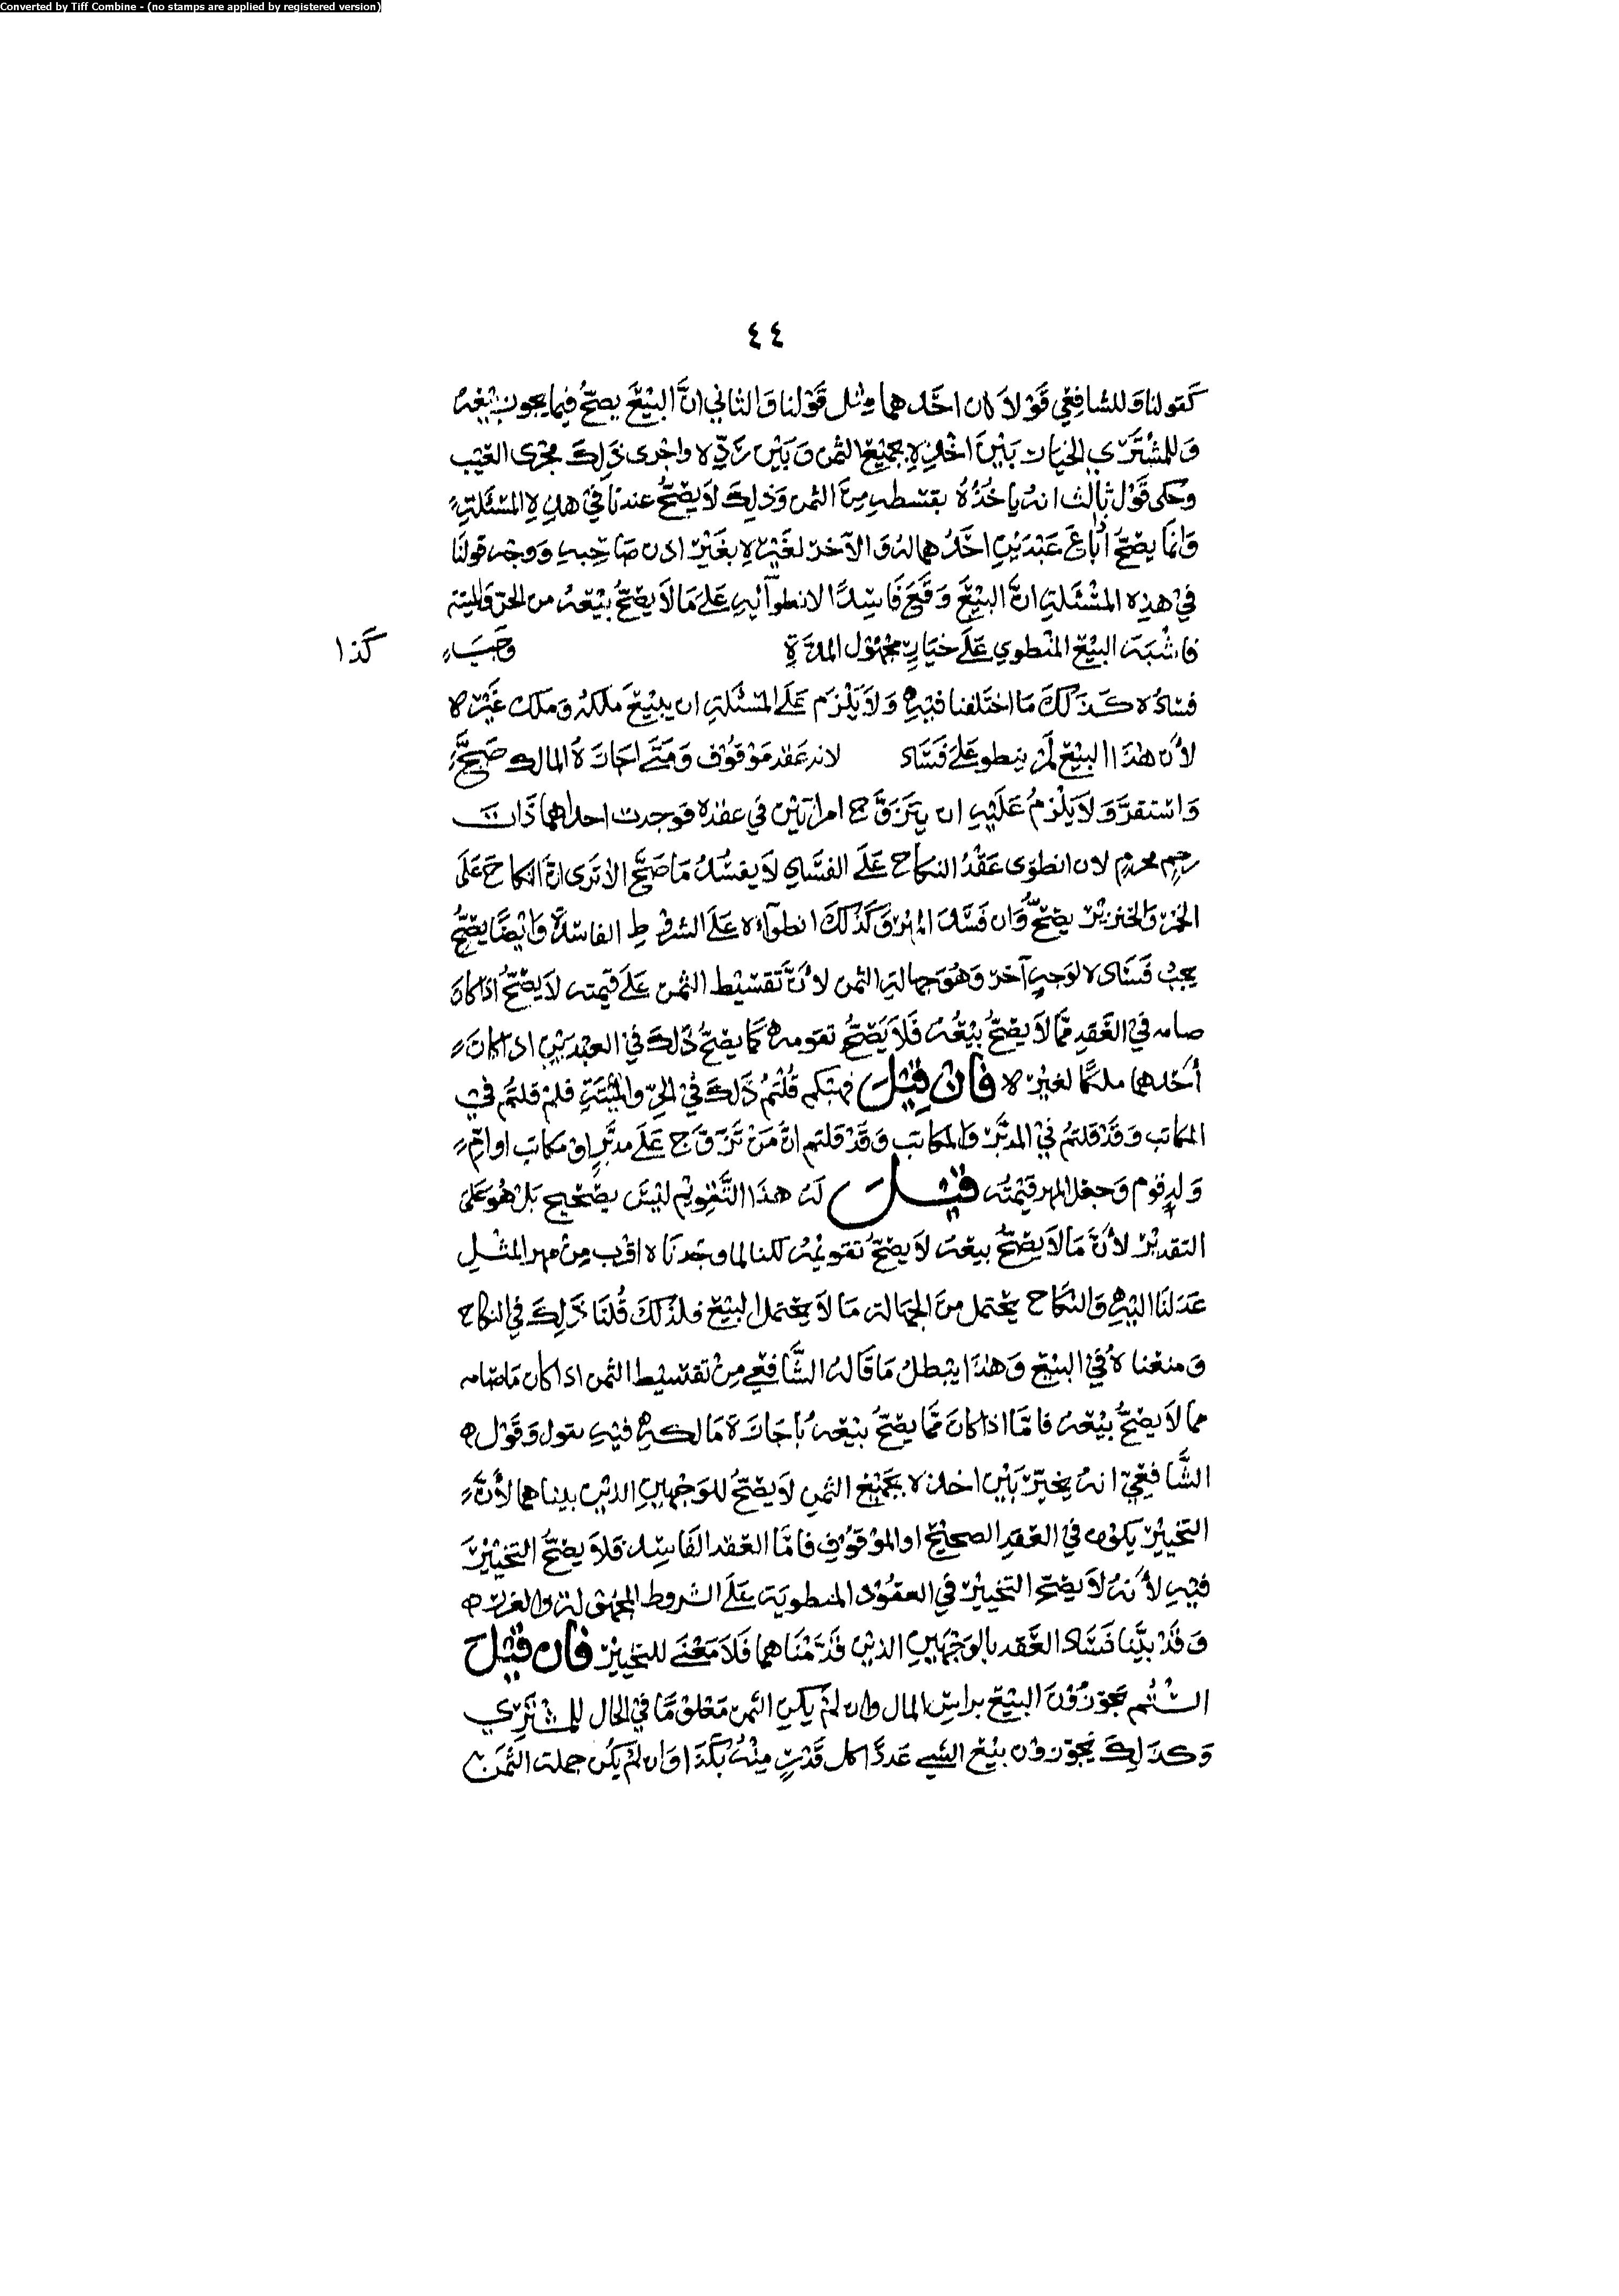 Converted by Tiff Combine - (no stamps are applied by registered version)
٤٤
كقولنا وللشافعي قولان احدهما مثل قولنا والثاني ان البيع يصح فيما يجوز بيعه
وللمشتري الخيار بين اخذه بجميع الثمن وبين رده واجرى ذلك مجرى العيب
وحكى قول ثالث انه ياخذه بقسطه من الثمن وذلك لا يصح عندنا في هذه المسئلة
وانما يصح اذا باع عبدين احدهما له والآخر لغيره بغير اذن صاحبه ووجه قولنا
في هذه المسئلة ان البيع وقع فاسدا لانطوآئه على مالا يصح بيعه من الحر والميتة
فاشبه البيع المنطوي على خيار مجهول المدة وجب كذا
فساده كذلك ما اختلفنا فيه ولا يلزم على المسئلة ان يبيع ملكه وملك غيره
لأن هذا البيع لم ينطو على فساد لانه عقد موقوف ومتى اجازه المالك صح
واستقر ولا يلزم عليه ان يتزوج امرأتين في عقدة فوجدت احداهما ذات
رحم محرم لان انطوى عقد النكاح على الفساد لا يفسد ما صح الا ترى ان النكاح على
الخمر والخنزير يصح وان فسد المهر وكذلك انطوآءه على الشروط الفاسدة وايضا يصح
يجب فساده لوجه آخر وهو جهالة الثمن لأن تقسيط الثمن على قيمته لا يصح اذا كان
ضامه في العقد مما لا يصح بيعه فلا يصح تقويمه كما يصح ذلك في العبدين اذا كان
أحدهما ملكا لغيره فان قيل فهبكم قلتم ذلك في الحر والميتة فلم قلتم في
المكاتب وقد قلتم في المدبر والمكاتب وقد قلتم ان من تزوج على مدبر او مكاتب او ام
ولد قوم وجعل المهر قيمته قيل له هذا التقويم ليس بصحيح بل هو على
التقدير لأن مالا يصح بيعه لا يصح تقويمه لكنا لما وجدناه اقرب من مهر المثل
عدلنا اليه والنكاح يحتمل من الجهالة مالا يحتمل البيع فلذلك قلنا ذلك في النكاح
ومنعناه في البيع وهذا يبطل ما قاله الشافعي من تقسيط الثمن اذا كان ما ضامه
مما لا يصح بيعه فاما اذا كان مما يصح بيعه بأجازة مالكه فبه نقول وقول
الشافعي انه يخير بين اخذه بجميع الثمن لا يصح للوجهين الذين بيناهما لأن
التخيير يكون في العقد الصحيح او الموقوف فاما العقد الفاسد فلا يصح التخيير
فيه لأنه لا يصح التخيير في العقود المنطوية على الشروط المجهولة والغرر
وقد بينا فساد العقد بالوجهين الذين قدمناهما فلا معنى للتخيير فان قيل
الستم تجوزون البيع براس المال وان لم يكن الثمن معلوما في الحال للمشتري
وكذلك تجوزون بيع الشيء عددا كل قدر منه بكذا وان لم يكن جملة الثمن